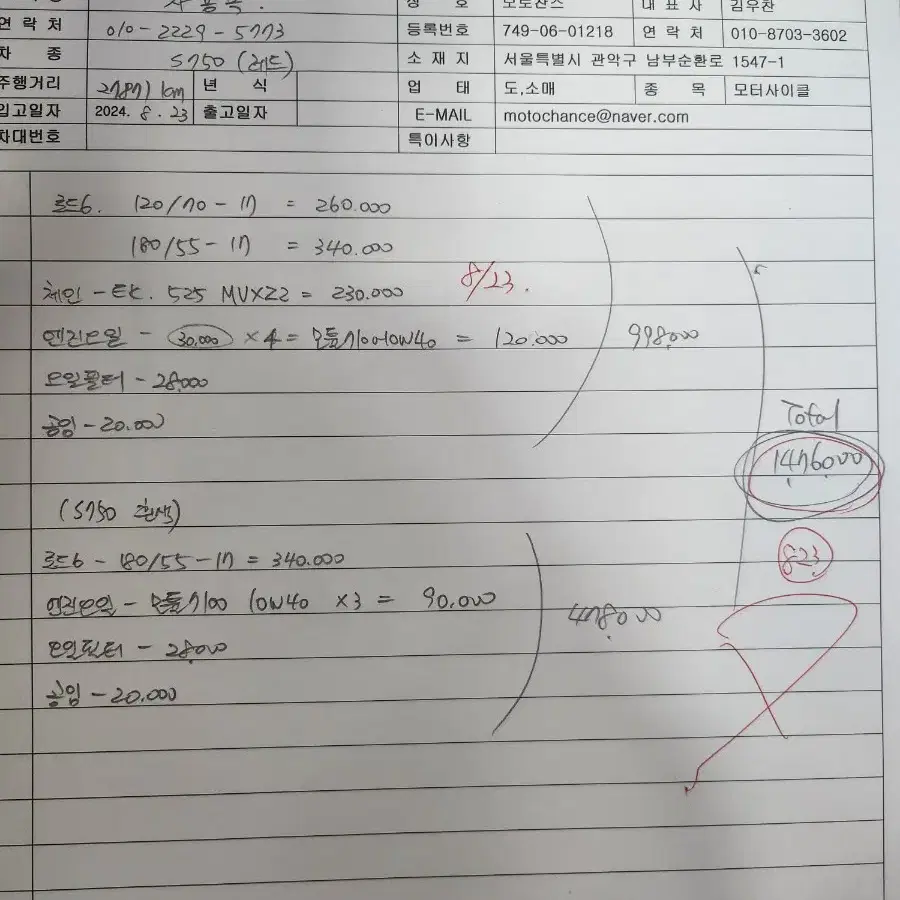 상 호 모토찬스 대 표 자 김우찬
연 락 처 010-2229-5773 등록번호 749-06-01218 연 락 처 010-8703-3602
차 종 S750 (레드) 소 재 지 서울특별시 관악구 남부순환로 1547-1
주행거리 27871 km 년 식 업 태 도,소매 종 목 모터사이클
입고일자 2024. 8. 23 출고일자 E-MAIL motochance@naver.com
차대번호 특이사항
로드6. 120/70-17 = 260.000
180/55-17 = 340.000
체인 - EK. 525 MVXZ2 = 230.000 8/23.
엔진오일 - 30,000 ×4 = 모튤7100 10W40 = 120.000 998,000
오일필터 - 28,000
공임 - 20.000
Total
1476000
(S750 흰색)
823
로드6 - 180/55-17 = 340.000
엔진오일 - 모튤7100 10W40 ×3 = 90.000 478,000
오일필터 - 28,000
공임 - 20.000